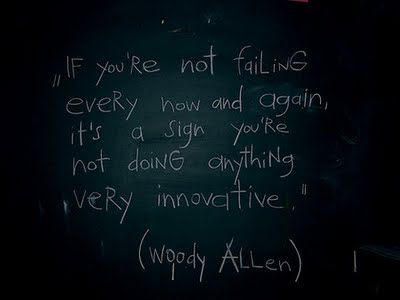 „IF you'Re not faiLiNG
eveRy now and again,
it's a sign you'Re
not doiNG anythiNG
veRy innovative."
(Woody ALLen)